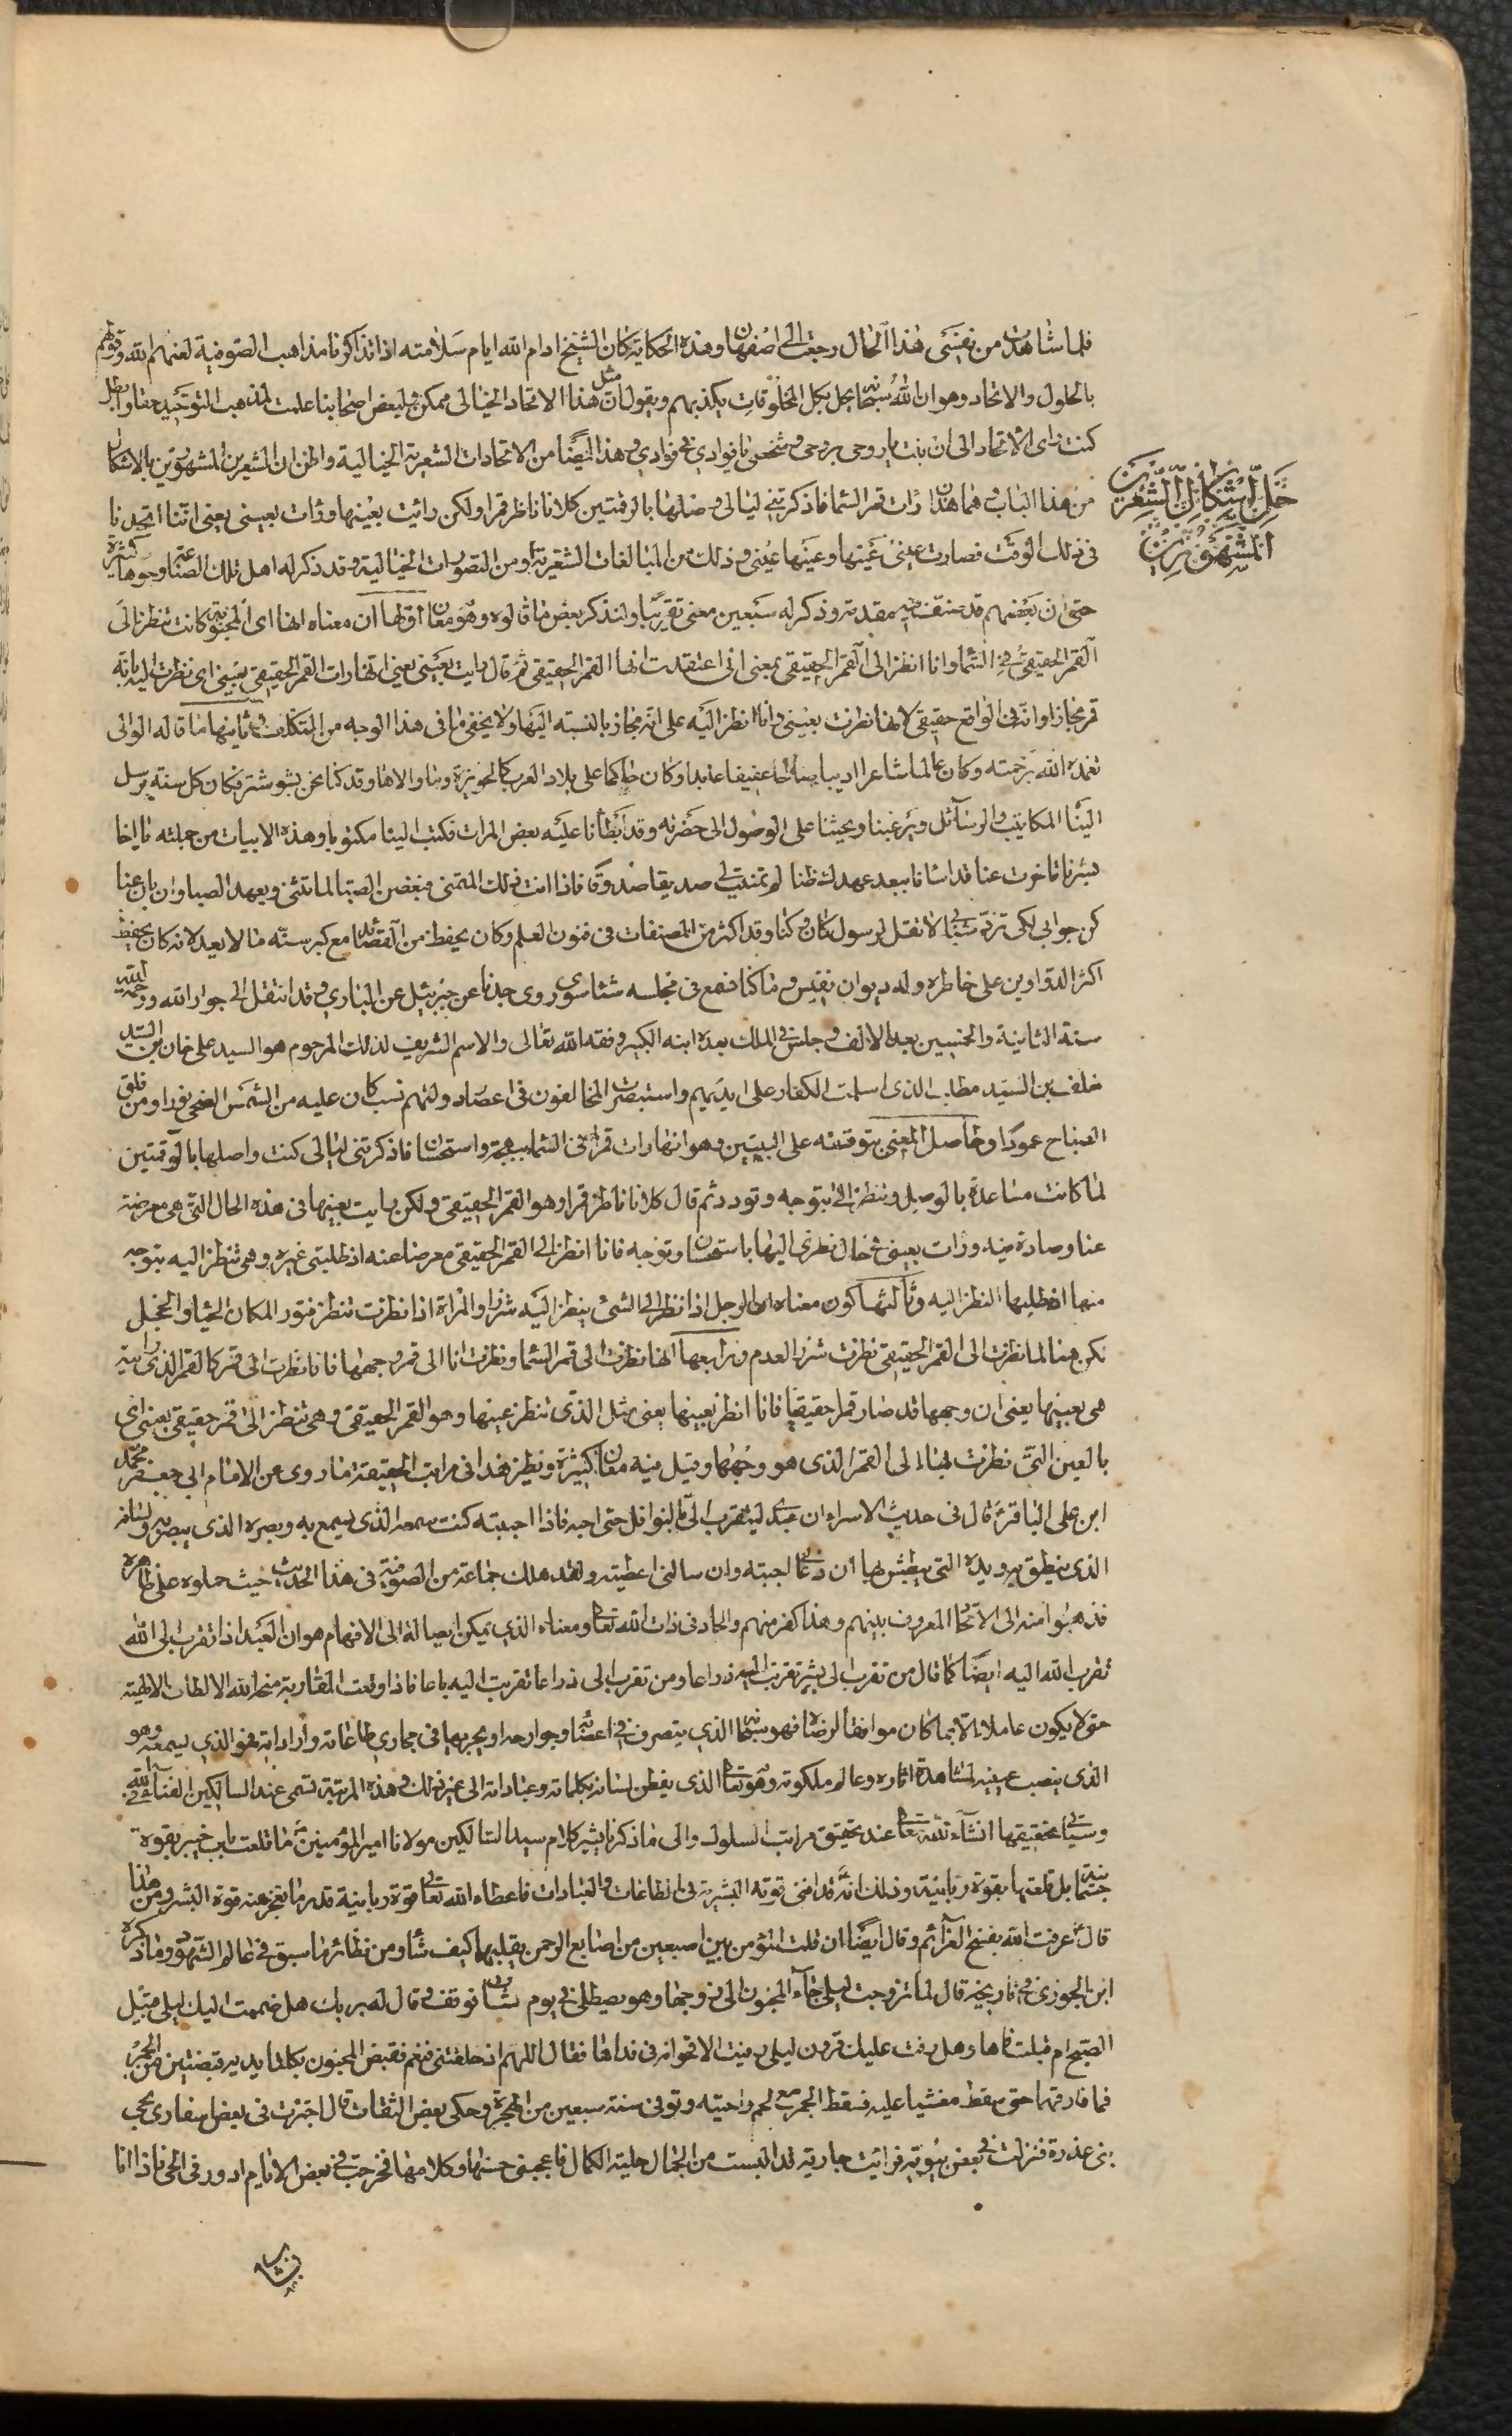 فلما شاهدت من نفسى هذا الحال رجعت الى اصفهان وهذه الحكاية كان الشيخ ادام الله ايام سلامته اذا تذاكرنا مذاهب الصوفية لعنهم الله وقولهم
بالحلول والاتحاد وهو ان الله سبحانه يحل بكل المخلوقات يكذبهم ويقول ان مثل هذا الاتحاد الخيالى ممكن ولبعض اصحابنا علمت لمذهب التوحيد حقا وابطل
كنت راى الاتحاد الى ان بنت يا روحى بروحى وشخصى يا فوادى فى فوادى وهذا ايضا من الاتحادات الشعرية الخيالية واظن ان الشعرين المشهورين بالاشكال
حل اشكال الشعرين
المشهورين
من هذا الباب وهما هذان رات قمر السما فاذكرتنى ليالى وصلها بالرقمتين كلانا ناظر قمرا ولكن رائيت بعينها ورات بعينى يعنى اننا اتحدنا
فى ذلك الوقت فصارت عينى عينها وعينها عينى وذلك من المبالغات الشعرية ومن التصورات الخيالية وقد ذكر له اهل تلك الصناعة وجوها كثيرة
حتى ان بعضهم قد صنف فيه مقدمة وذكر له سبعين معنى تقريبا ولنذكر بعض ما قالوه وهو معان اولها ان معناه انها اى المحبوبة كانت تنظر الى
القمر الحقيقى فى السما وانا انظر الى القمر الحقيقى بمعنى انى اعتقدت انها القمر الحقيقى ثم قال رايت بعينى يعنى انها رات القمر الحقيقى بعينى اى نظرت اليه بانه
قمر مجازا وانه فى الواقع حقيقى لانها نظرت بعينى وانا انظر اليه على انه مجاز بالنسبة اليها ولا يخفى ما فى هذا الوجه من التكلف وثانيها ما قاله الوالى
تغمده الله برحمته وكان عالما شاعرا اديبا صالحا عفيفا عابدا وكان حاكما على بلاد العرب كالحويزة وما والاها وقد كنا نحن بشوشتر فكان كل سنة يرسل
الينا المكاتيب والرسائل ويرغبنا ويحثنا على الوصول الى حضرته وقد ابطأنا عليه بعض المرات فكتب الينا مكتوبا وهذه الابيات من جملته يا اخا
بشرنا تاخرت عنا قد اسانا ببعد عهدك ظنا لم تمنيت لى صديقا صدوقا فاذا انت ذلك المتمنى فبغصن الصبا لما تثنى وبعهد الصبا وان بان عنا
كن جوابى لكى ترد شبابى لا تقل لرسول كان وكنا وقد اكثر من المصنفات فى فنون العلم وكان يحفظ من القصائد مع كبر سنه ما لا يعد لانه كان يحفظ
اكثر الدواوين على خاطره وله ديوان نفيس وما كنا نسمع فى مجلسه شئا سوى روى جدنا عن جبرئيل عن البارى وقد انتقل الى جوار الله ورحمته
سنة الثانية والخمسين بعد الالف وجلس فى الملك بعده ابنه الكبير وفقه الله تعالى والاسم الشريف لذلك المرحوم هو السيد على خان بن السيد
خلف بن السيد مطلب الذى اسلمت الكفار على ايديهم واستبصرت المخالفون فى اعصارد ولتهم نسب كان عليه من الشمس الضحى نورا ومن فلق
الصباح عمودا وحاصل المعنى بتوقفه على البيتين وهو انها رات قمرا فى السما ببهجة واستحسان فاذكرتنى ليالى كنت واصلها بالرقمتين
لما كانت مساعدة بالوصل وتنظر الى بتوجه وتودد ثم قال كلانا ناظر قمرا وهو القمر الحقيقى ولكن رايت بعينها فى هذه الحال التى هى معرضة
عنا وصادة منه ورات بعينى فى حال نظرى اليها باستحسان وتوجه فانا انظر الى القمر الحقيقى معرضا عنه اذ طلبتى غيره وهى تنظر اليه بتوجه
منها اذ طلبها النظر اليه وثالثها كون معناه ان الرجل اذا نظر الى الشئ ينظر اليه شزرا والمراة اذا نظرت تنظر فتور المكان الحيا والخجل
لكن هنا لما نظرت الى القمر الحقيقى نظرت شزرا لعدم ورابعها انها نظرت الى قمر السما ونظرت انا الى قمر وجهها فانا نظرت الى قمر كالقمر الذى راته
هى بعينها يعنى ان وجهها قد صار قمرا حقيقيا فانا انظر بعينها يعنى مثل الذى تنظر عينها وهو القمر الحقيقى وهى تنظر الى قمر حقيقى بعينى اى
بالعين التى نظرت بها الى القمر الذى هو وجهها وقيل فيه معان كثيرة ونظير هذا فى مراتب الحقيقة ما روى عن الامام ابى جعفر محمد
ابن على الباقر قال فى حديث الاسراء ان عبدى ليتقرب الى بالنوافل حتى احبه فاذا احببته كنت سمعه الذى يسمع به وبصره الذى يبصر به ولسانه
الذى ينطق به ويده التى يبطش بها ان دعانى اجبته وان سالنى اعطيته ولقد هلك جماعة من الصوفية فى هذا الحديث حيث حملوه على ظاهره
فذهبوا منه الى الاتحاد المعروف بينهم وهذا كفر منهم والحاد فى ذات الله تعالى ومعناه الذى يمكن ايصاله الى الافهام هو ان العبد اذا تقرب الى الله
تقرب الله اليه ايضا كما قال من تقرب الى بشبر تقربت اليه ذراعا ومن تقرب الى ذراعا تقربت اليه باعا فاذا وقعت المقاربة منحه الله الالطاف الالهية
حتى لا يكون عاملا الا بما كان موافقا لرضاه فهو سبحانه الذى يتصرف فى اعضائه وجوارحه ويجريها فى مجارى طاعاته وارادته فهو الذى يسمعه وهو
الذى ينصب عينيه لمشاهدة اثاره وعالم ملكوته وهو تعالى الذى ينطق لسانه بكلماته وعباداته الى غير ذلك وهذه المرتبة تسمى عند السالكين الفنا فى الله
وسياتى تحقيقها انشاء الله تعالى عند تحقيق مراتب السلوك والى ما ذكرنا يشير كلام سيد السالكين مولانا امير المؤمنين ما قلعت باب خيبر بقوة
جسمانية بل قلعتها بقوة ربانية وذلك انه قد افنى قوته البشرية فى الطاعات والعبادات فاعطاه الله تعالى قوة ربانية قلع بها ما تعجز عنه قوة البشر ومن هذا
قال عرفت الله بفسخ العزائم وقال ايضا ان قلب المؤمن بين اصبعين من اصابع الرحمن يقلبها كيف شاء ومن نظائر ما سبق فى عالم الشهود وما ذكره
ابن الجوزى فى تاريخه قال لما تزوجت ليلى جاء المجنون الى زوجها وهو يصطلى فى يوم شات فوقف وقال له بربك هل ضممت اليك ليلى قبيل
الصبح ام قبلت فاها وهل رفت عليك قرون ليلى رفيف الاقحوانة فى نداها فقال اللهم اذ حلفتنى فنعم فقبض المجنون بكلتا يديه قبضتين من الجمر
فما فارقتها حتى سقط مغشيا عليه فسقط الجمر مع لحم راحتيه وتوفى سنة سبعين من الهجرة وحكى بعض الثقات قال اجتزت فى بعض اسفارى بحى
بنى عذرة فنزلت فى بعض بيوته فرائيت جارية قد البست من الجمال حلية الكمال فاعجبنى حسنها وكلامها فخرجت فى بعض الايام ادور فى الحى فاذا انا